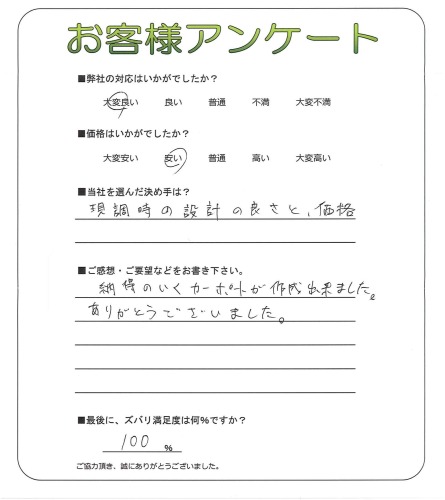 お客様アンケート
■弊社の対応はいかがでしたか?
大変良い 良い 普通 不満 大変不満
■価格はいかがでしたか?
大変安い 安い 普通 高い 大変高い
■当社を選んだ決め手は?
現調時の設計の良さと、価格
■ご感想・ご要望などをお書き下さい。
納得のいくカーポートが作成出来ました。
ありがとうございました。
■最後に、ズバリ満足度は何%ですか?
100 %
ご協力頂き、誠にありがとうございました。